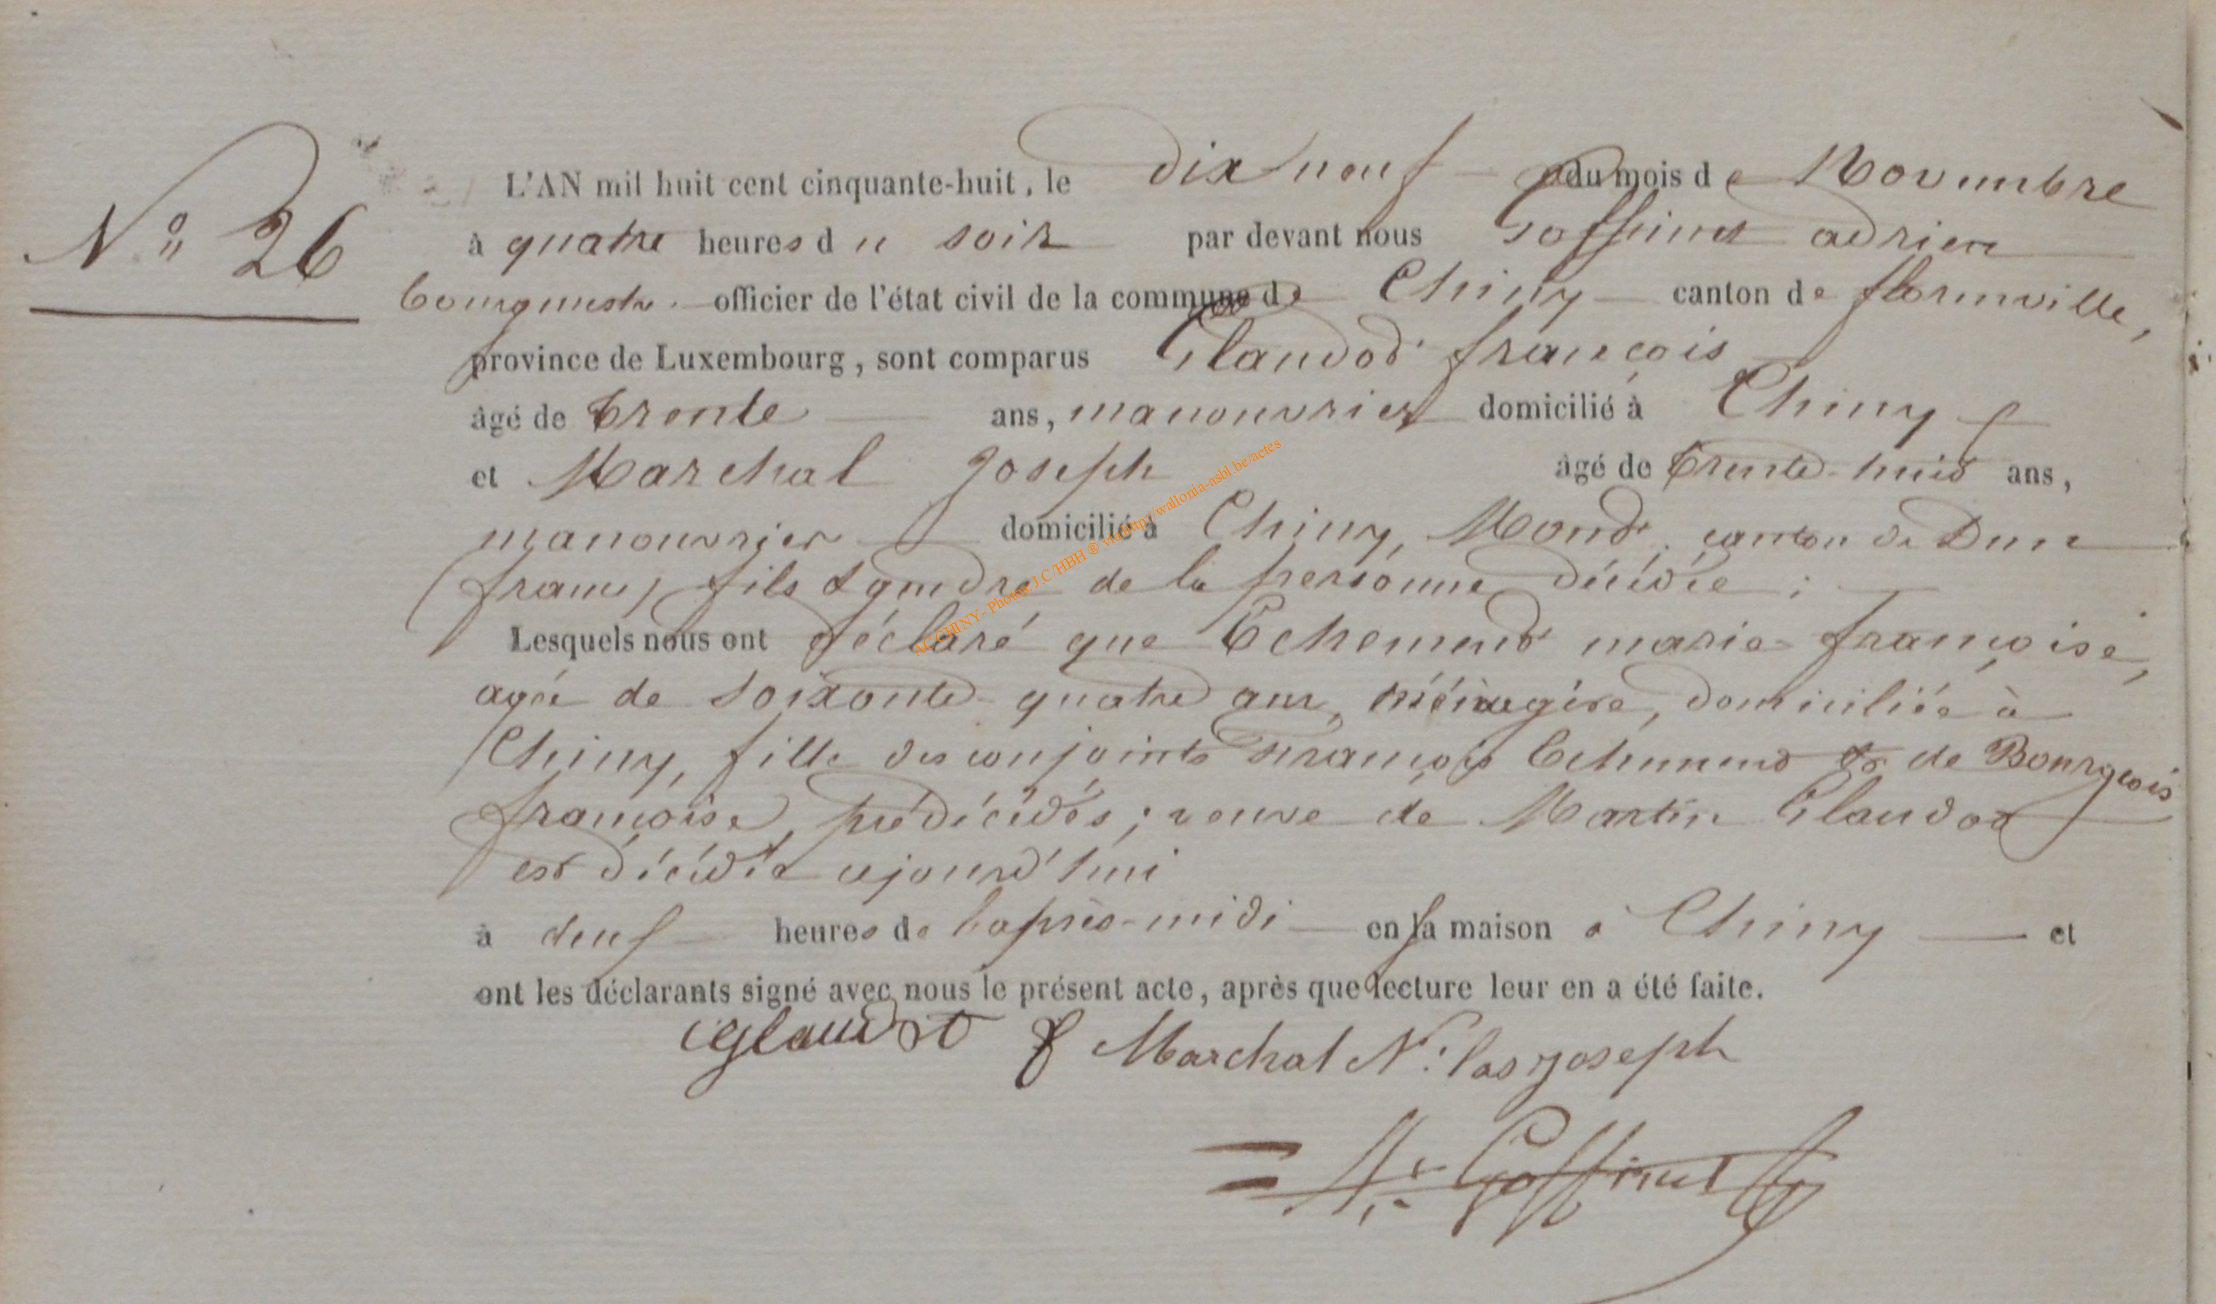 L'AN mil huit cent cinquante-huit, le dix neuf du mois de Novembre
N° 26
à quatre heures du soir par devant nous Goffinet adrien
bourgmestre officier de l'état civil de la commune de Chiny canton de florenville,
province de Luxembourg, sont comparus Glaudot françois
âgé de trente ans, manouvrier domicilié à Chiny
et Marchal Joseph âgé de trente-huit ans,
manouvrier domicilié à Chiny, Mont, canton de Dun
(france) fils & gendre de la personne décédée ;
Lesquels nous ont déclaré que Echement marie françoise,
agée de soixante-quatre ans, ménagère, domiciliée à
Chiny, fille des conjoints françois Echement & de Bourgeois
françoise, prédécédés ; veuve de Martin Glaudot
est décédée cejourd'hui
à deux heures de l'après-midi en sa maison à Chiny et
ont les déclarants signé avec nous le présent acte, après que lecture leur en a été faite.
Glaudot f Marchal N:las Joseph
A: Goffinet
AC CHINY - Photos J.C /HBH ® via http:/wallonia-asbl.be/actes